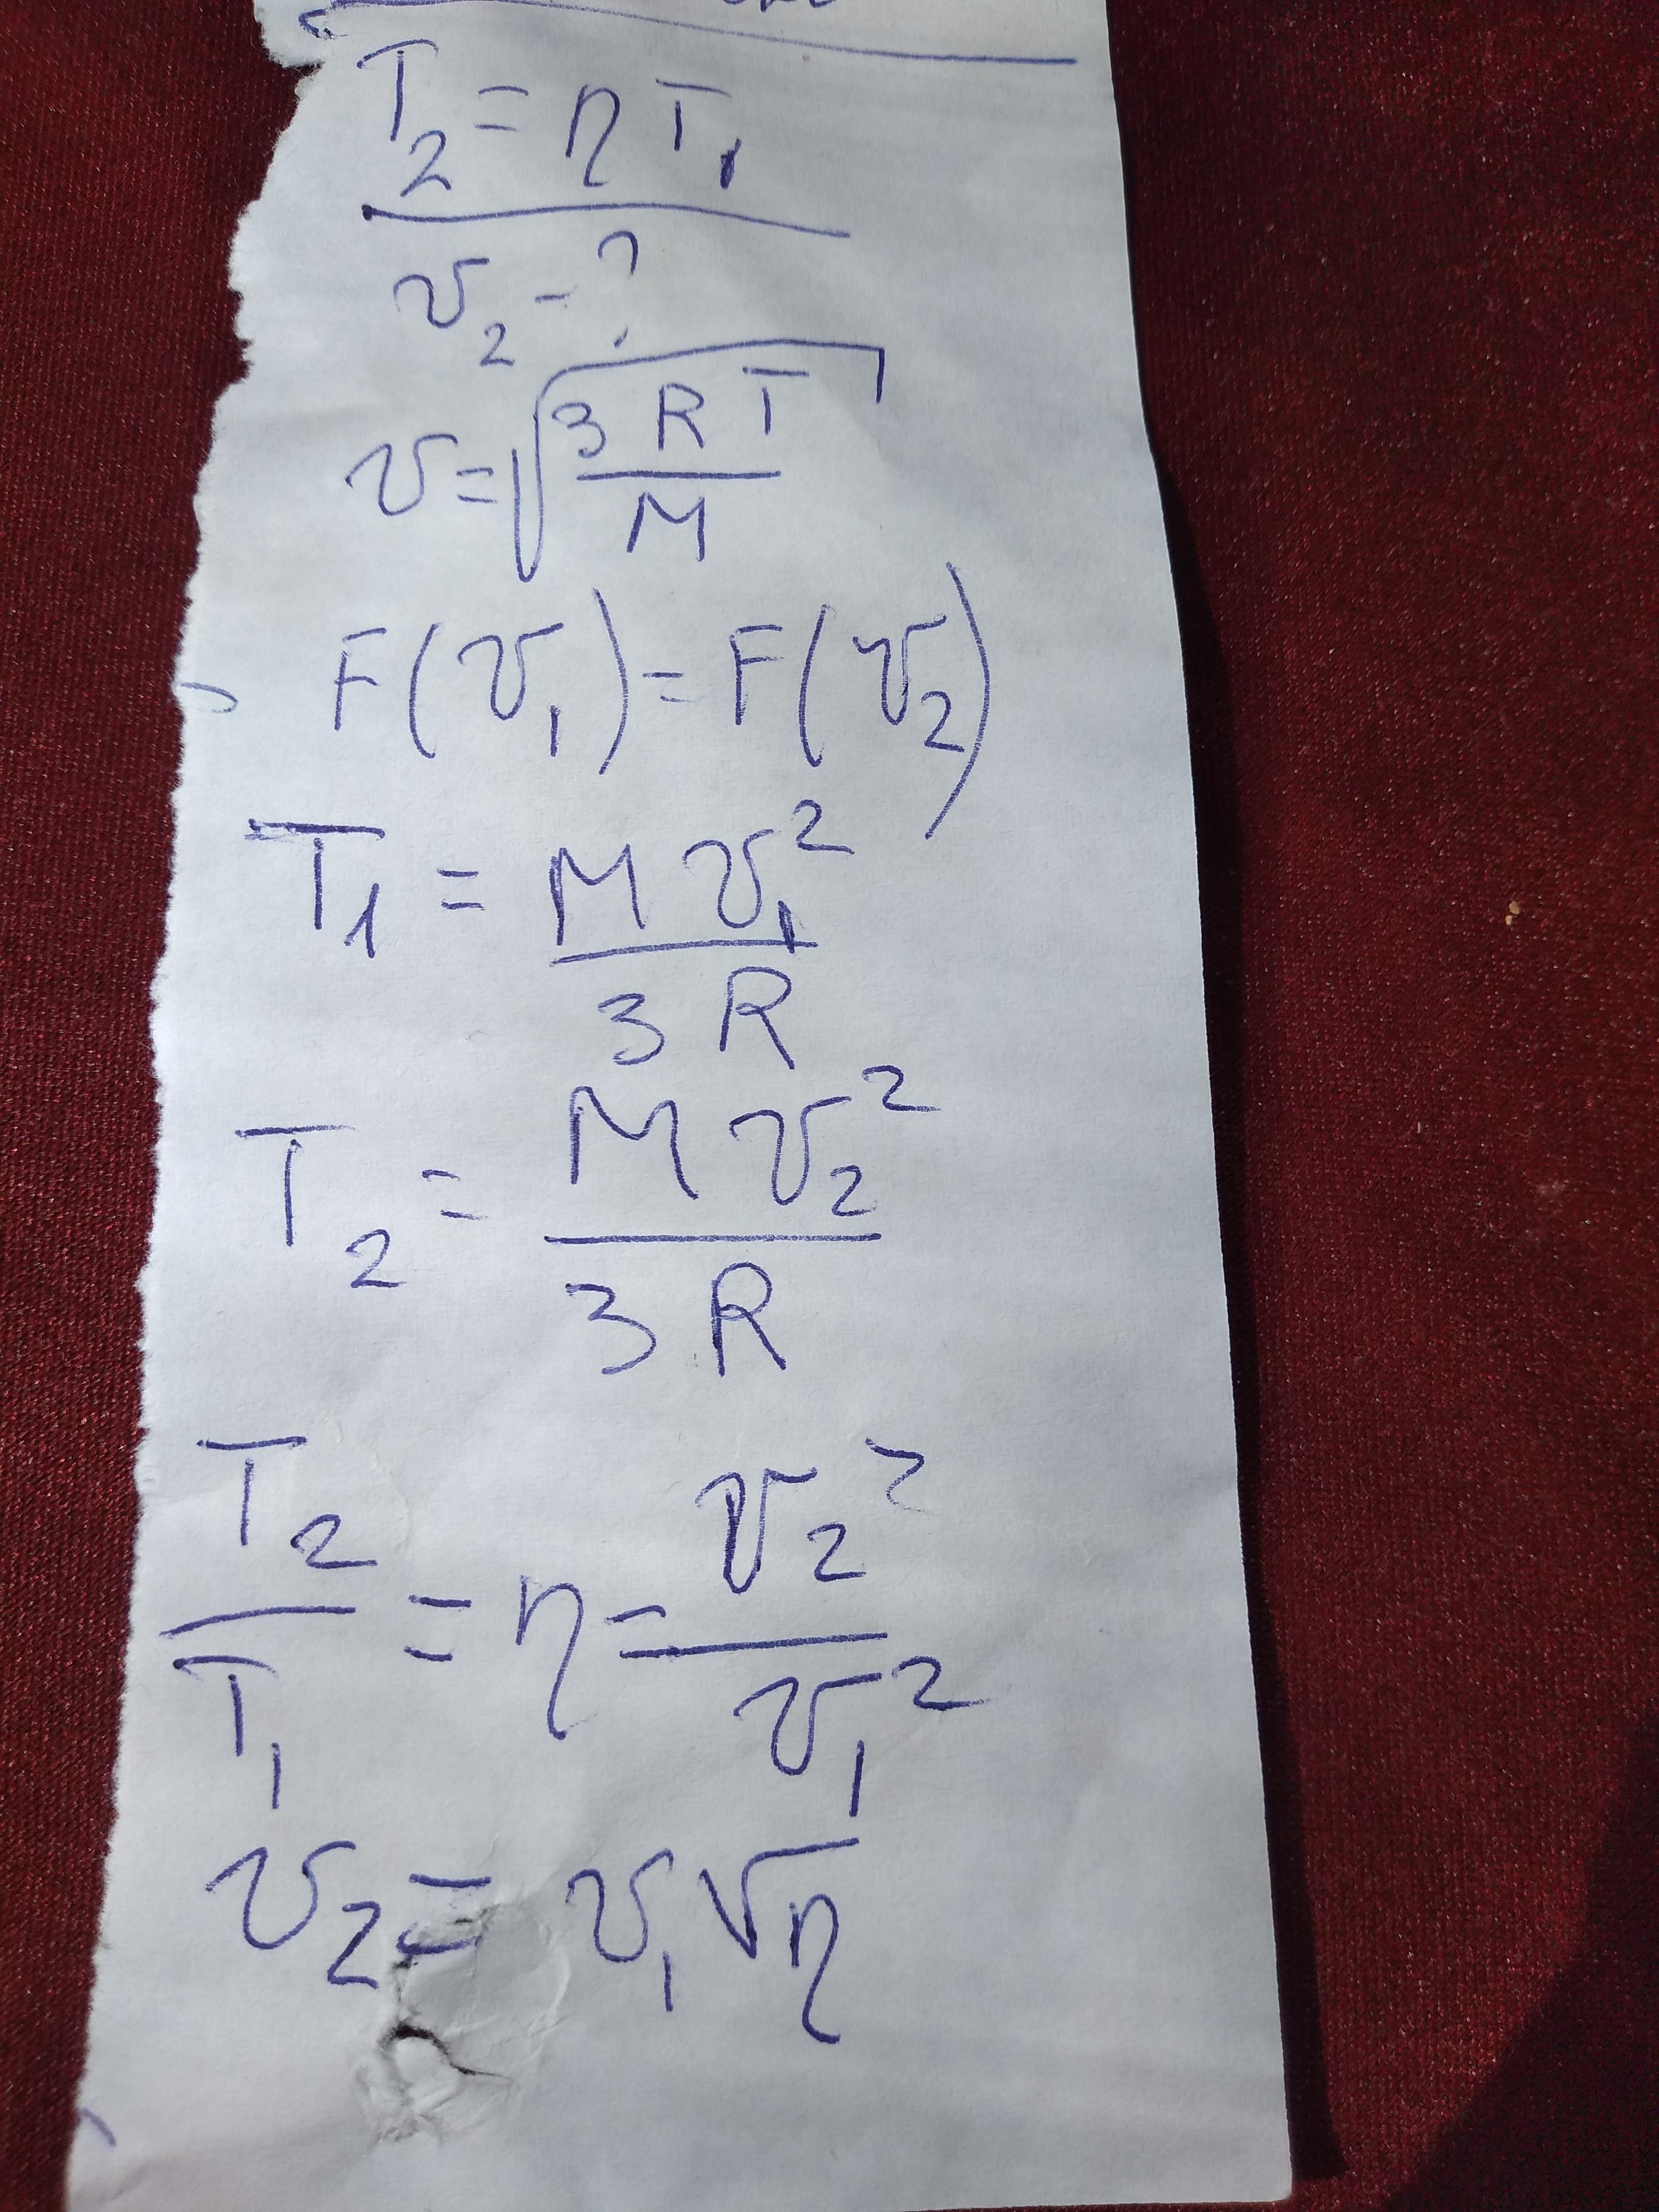 T₂ = η T₁
v₂ - ?
v = √(3RT/M)
F(v₁) = F(v₂)
T₁ = Mv₁²/3R
T₂ = Mv₂²/3R
T₂/T₁ = η = v₂²/v₁²
v₂ = v₁√η